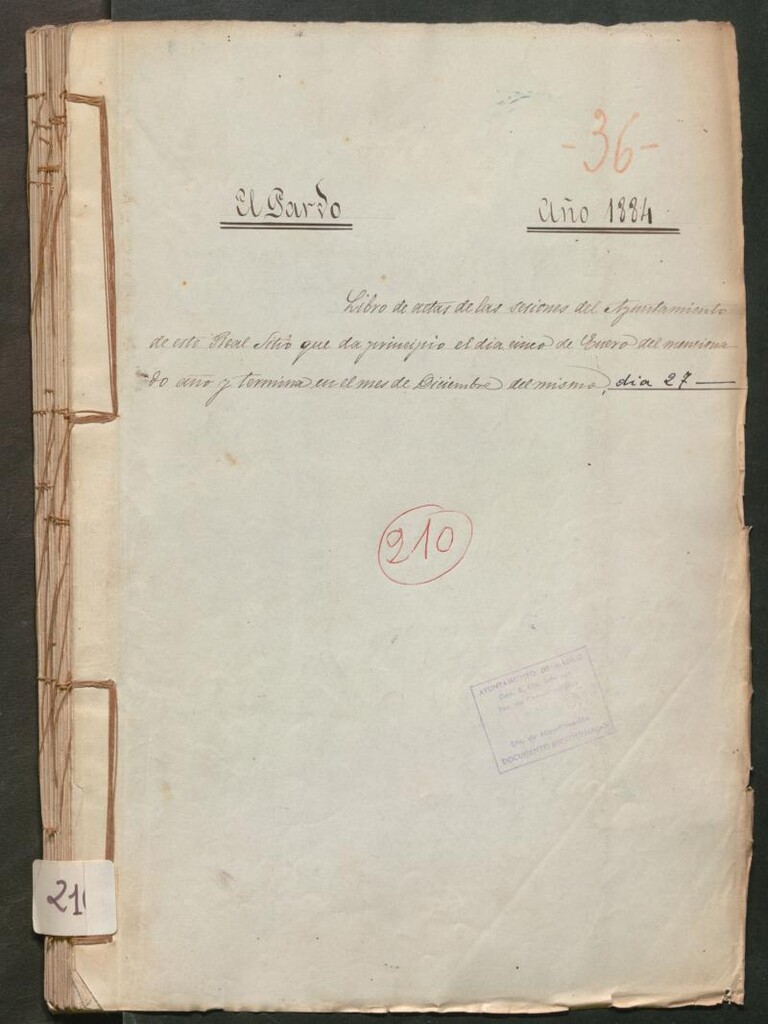 -36-
El Pardo Año 1884
Libro de actas de las sesiones del Ayuntamiento
de este Real Sitio que da principio el dia cinco de Enero del menciona
do año y termina en el mes de Diciembre del mismo, dia 27 —
210
AYUNTAMIENTO DE MADRID
DOCUMENTO
21